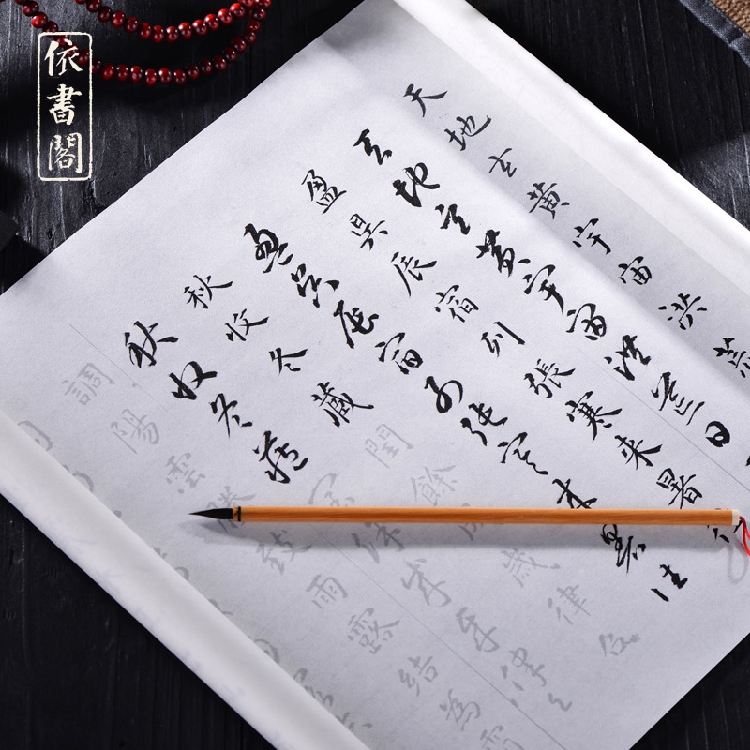 依書閣
天地玄黄宇宙洪荒
天地玄黄宇宙洪荒日
盈昃辰宿列張寒來暑往
盈昃辰宿列張寒來暑往
秋收冬藏閏餘成歲律呂
秋收冬藏閏餘成歲律呂
調陽雲騰致雨露結為霜